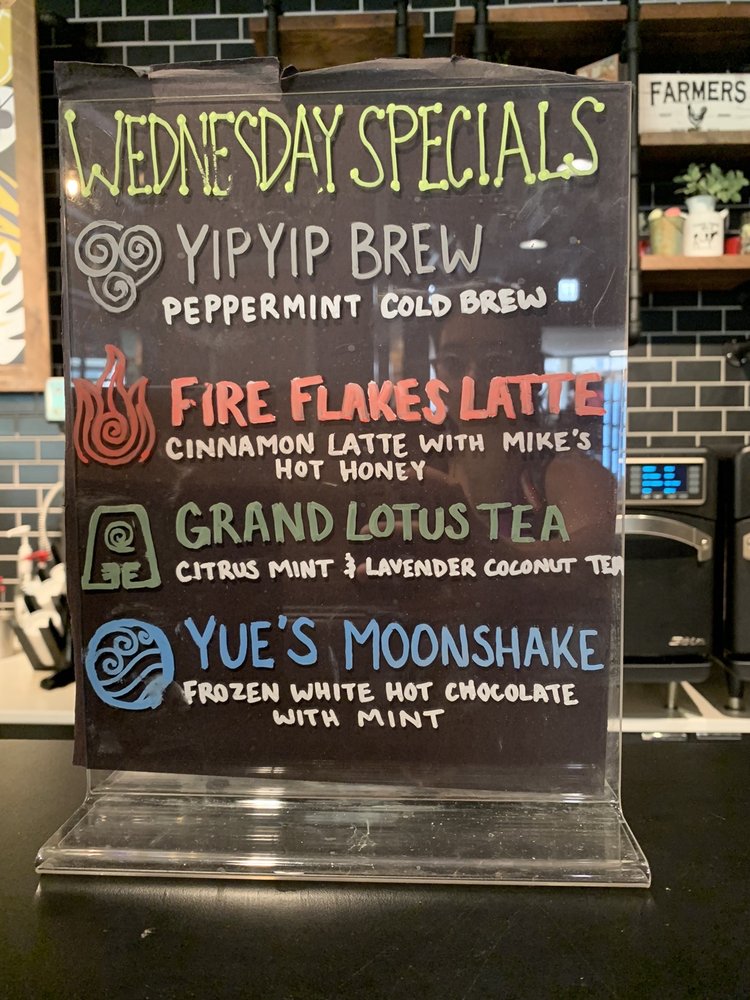 WEDNESDAY SPECIALS
YIPYIP BREW
PEPPERMINT COLD BREW
FIRE FLAKES LATTE
CINNAMON LATTE WITH MIKE'S
HOT HONEY
GRAND LOTUS TEA
CITRUS MINT & LAVENDER COCONUT TEA
YUE'S MOONSHAKE
FROZEN WHITE HOT CHOCOLATE
WITH MINT
FARMERS